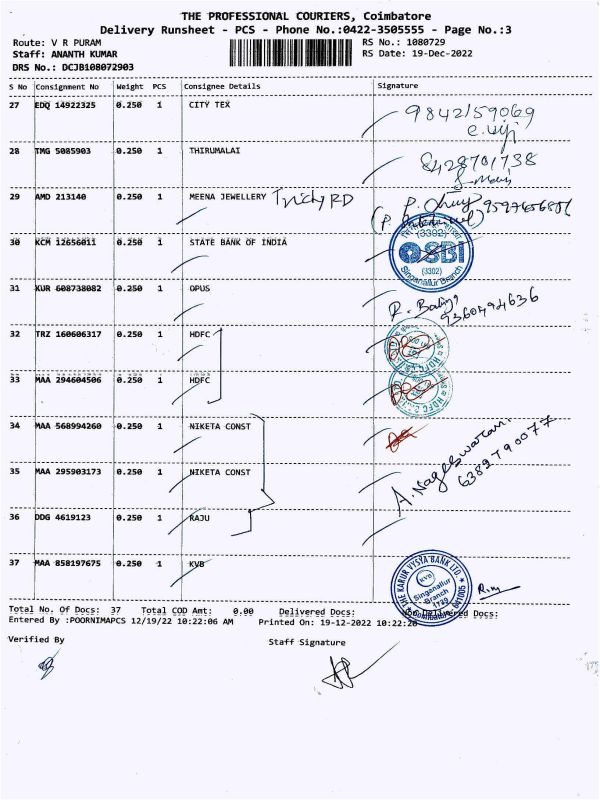 THE PROFESSIONAL COURIERS, Coimbatore
Delivery Runsheet - PCS - Phone No.:0422-3505555 - Page No.:3
Route: V R PURAM RS No.: 1080729
Staff: ANANTH KUMAR RS Date: 19-Dec-2022
DRS No.: DCJB108072903
S No Consignment No Weight PCS Consignee Details Signature
27 EDQ 14922325 0.250 1 CITY TEX 9842159069
e.viji
28 TMG 5085903 0.250 1 THIRUMALAI 8428701738
29 AMD 213140 0.250 1 MEENA JEWELLERY Trichy RD
30 KCM 12656011 0.250 1 STATE BANK OF INDIA
(3302)
SBI
(3302)
Singanallur Branch
31 KUR 608738082 0.250 1 OPUS
9360494636
32 TRZ 160606317 0.250 1 HDFC
33 MAA 294604506 0.250 1 HDFC
34 MAA 568994260 0.250 1 NIKETA CONST
35 MAA 295903173 0.250 1 NIKETA CONST A. Nageswaran
6382790077
36 DDG 4619123 0.250 1 RAJU
37 MAA 858197675 0.250 1 KVB
THE KARUR VYSYA BANK LTD.
KVB
Singanallur
Branch
1729
Coimbatore 641005
Total No. Of Docs: 37 Total COD Amt: 0.00 Delivered Docs: Delivered Docs:
Entered By :POORNIMAPCS 12/19/22 10:22:06 AM Printed On: 19-12-2022 10:22:26
Verified By Staff Signature